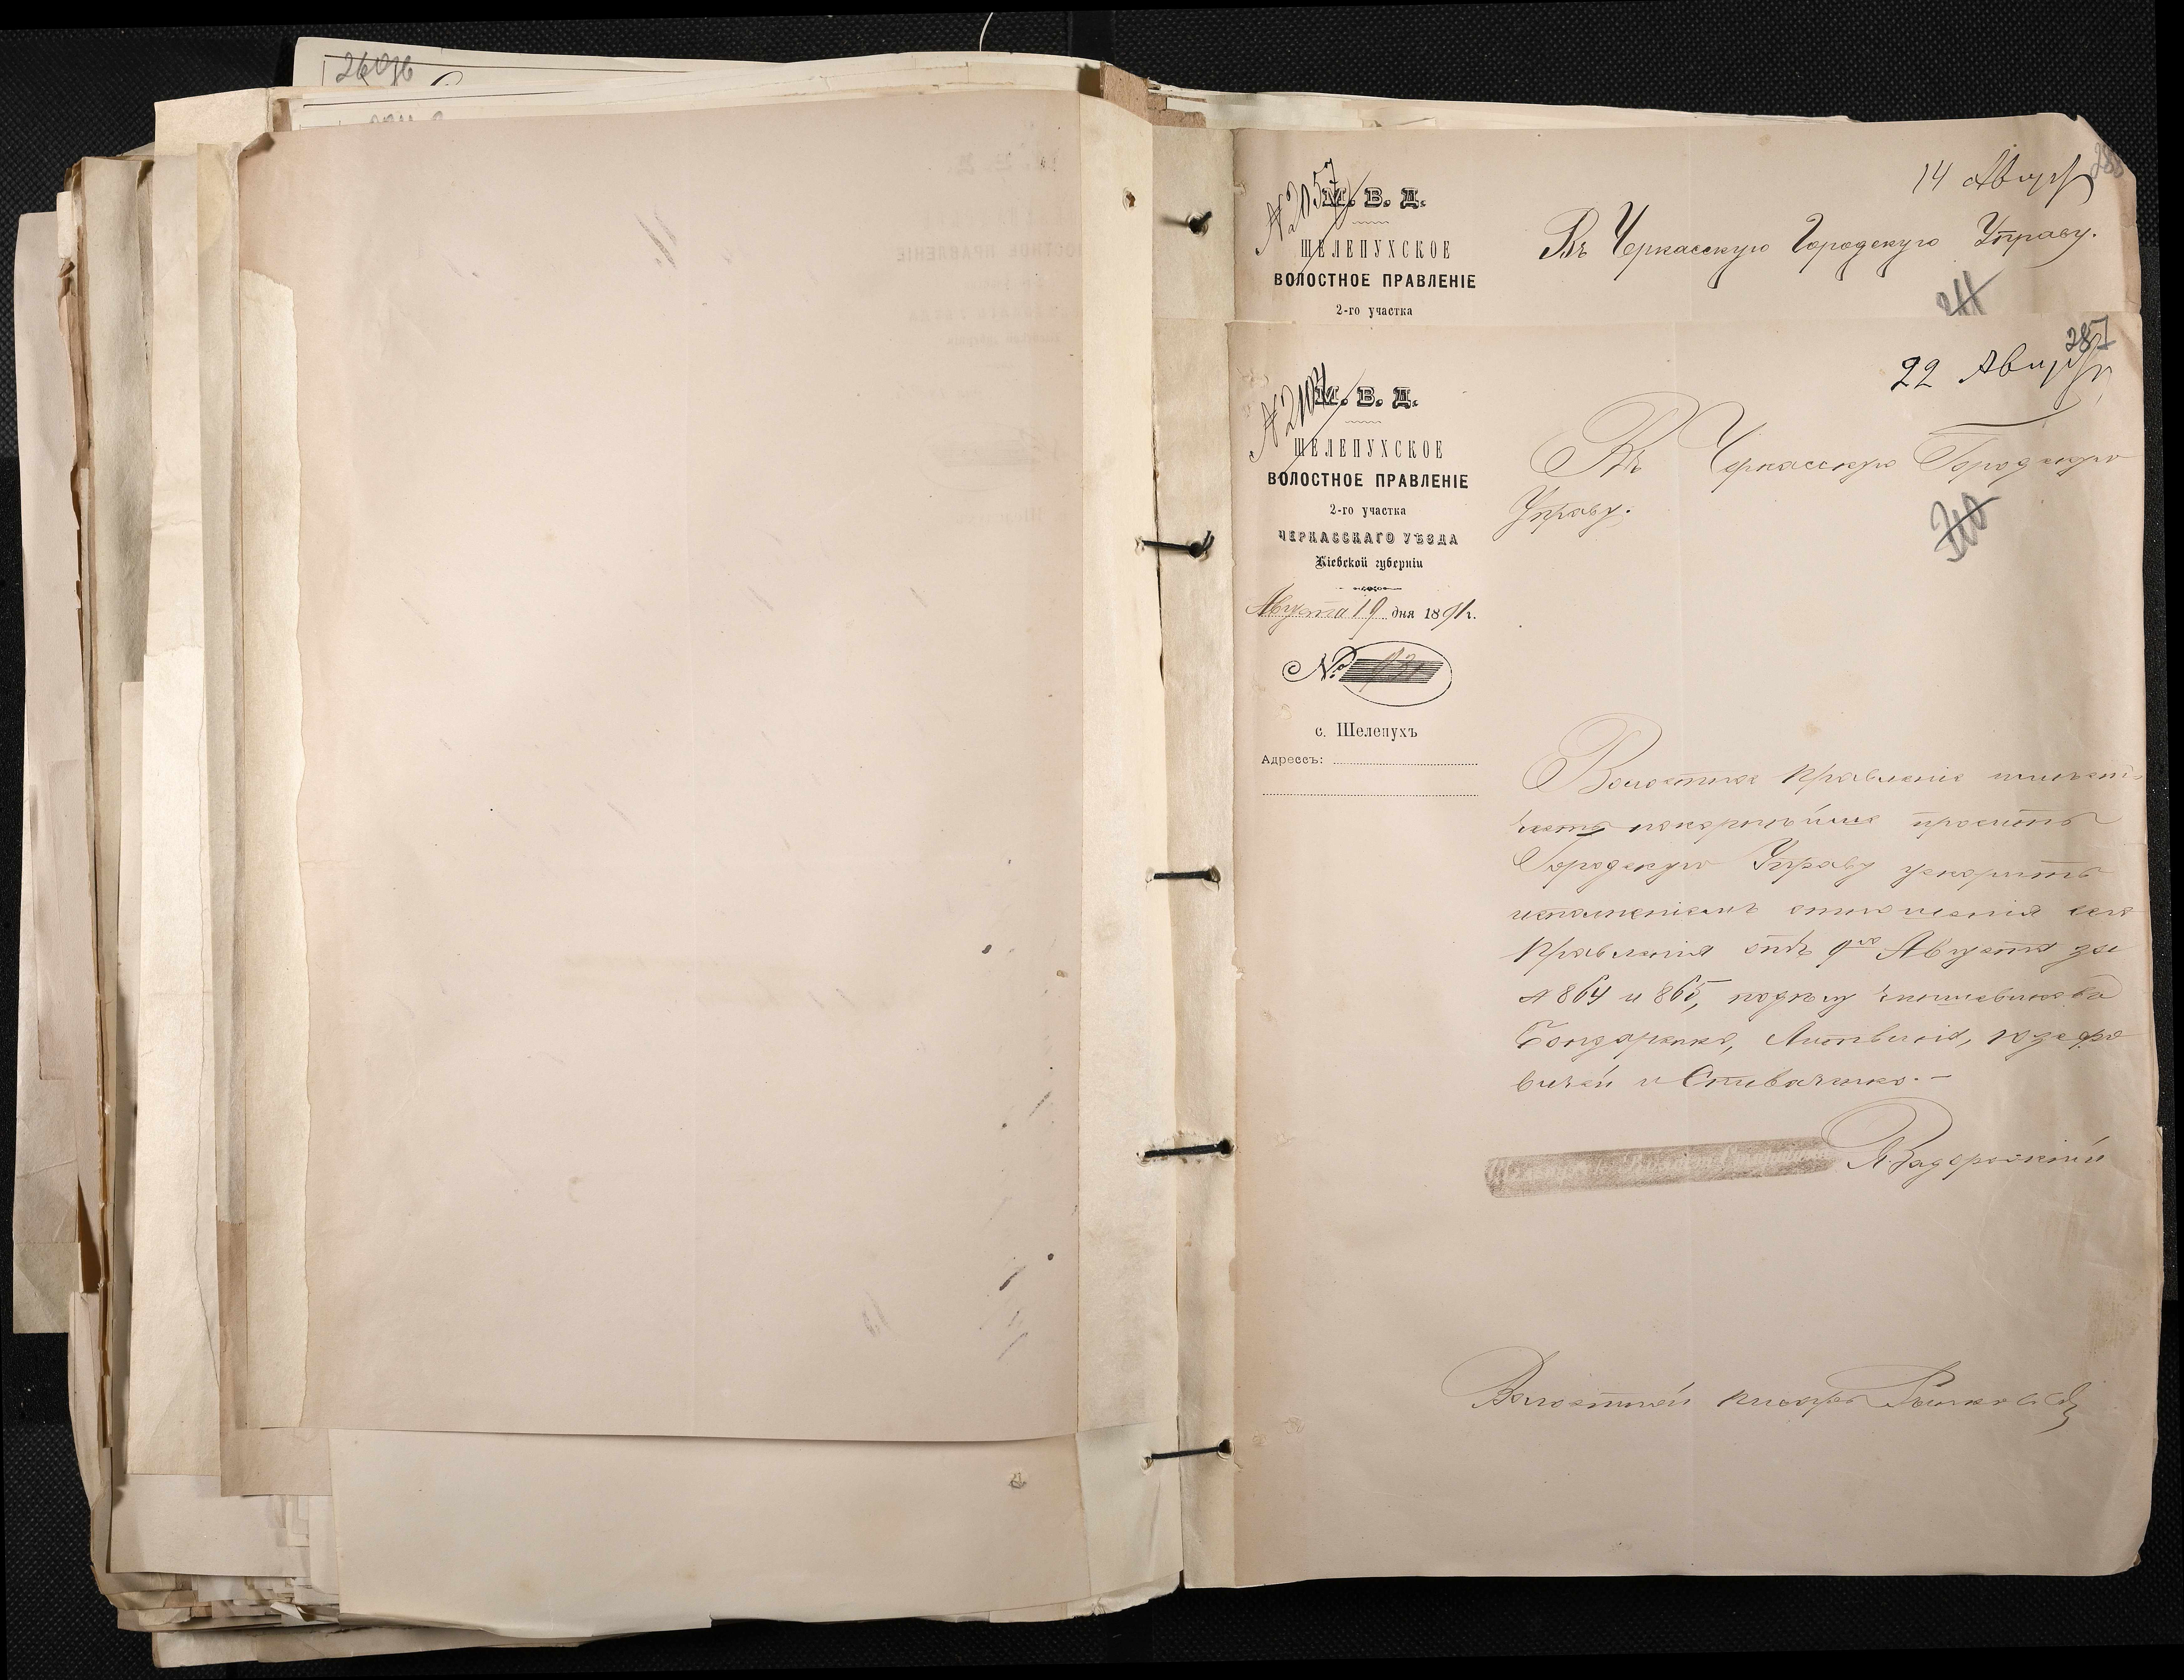 14 Август
№ 2057
М. В. Д.
ШЕЛЕПУХСКОЕ
ВОЛОСТНОЕ ПРАВЛЕНІЕ
2-го участка
Въ Черкасскую Городскую Управу.
287
22 Август
М. В. Д.
ШЕЛЕПУХСКОЕ
ВОЛОСТНОЕ ПРАВЛЕНІЕ
2-го участка
ЧЕРКАССКАГО УѢЗДА
Кіевской губерніи
Августа 19 дня 1891 г.
№
с. Шелепухъ
Адрессъ:
Въ Черкасскую Городскую
Управу.
Волостное Правленіе имѣетъ
честь покорнѣйше проситъ
Городскую Управу ускорить
исполненіемъ отношенія сего
Правленія отъ 9го Августа за
№ 864 и 865, подѣлу
Бондаренко, Литвина, Юзефо
вичей и Спиваченко.-
Волостной писарь